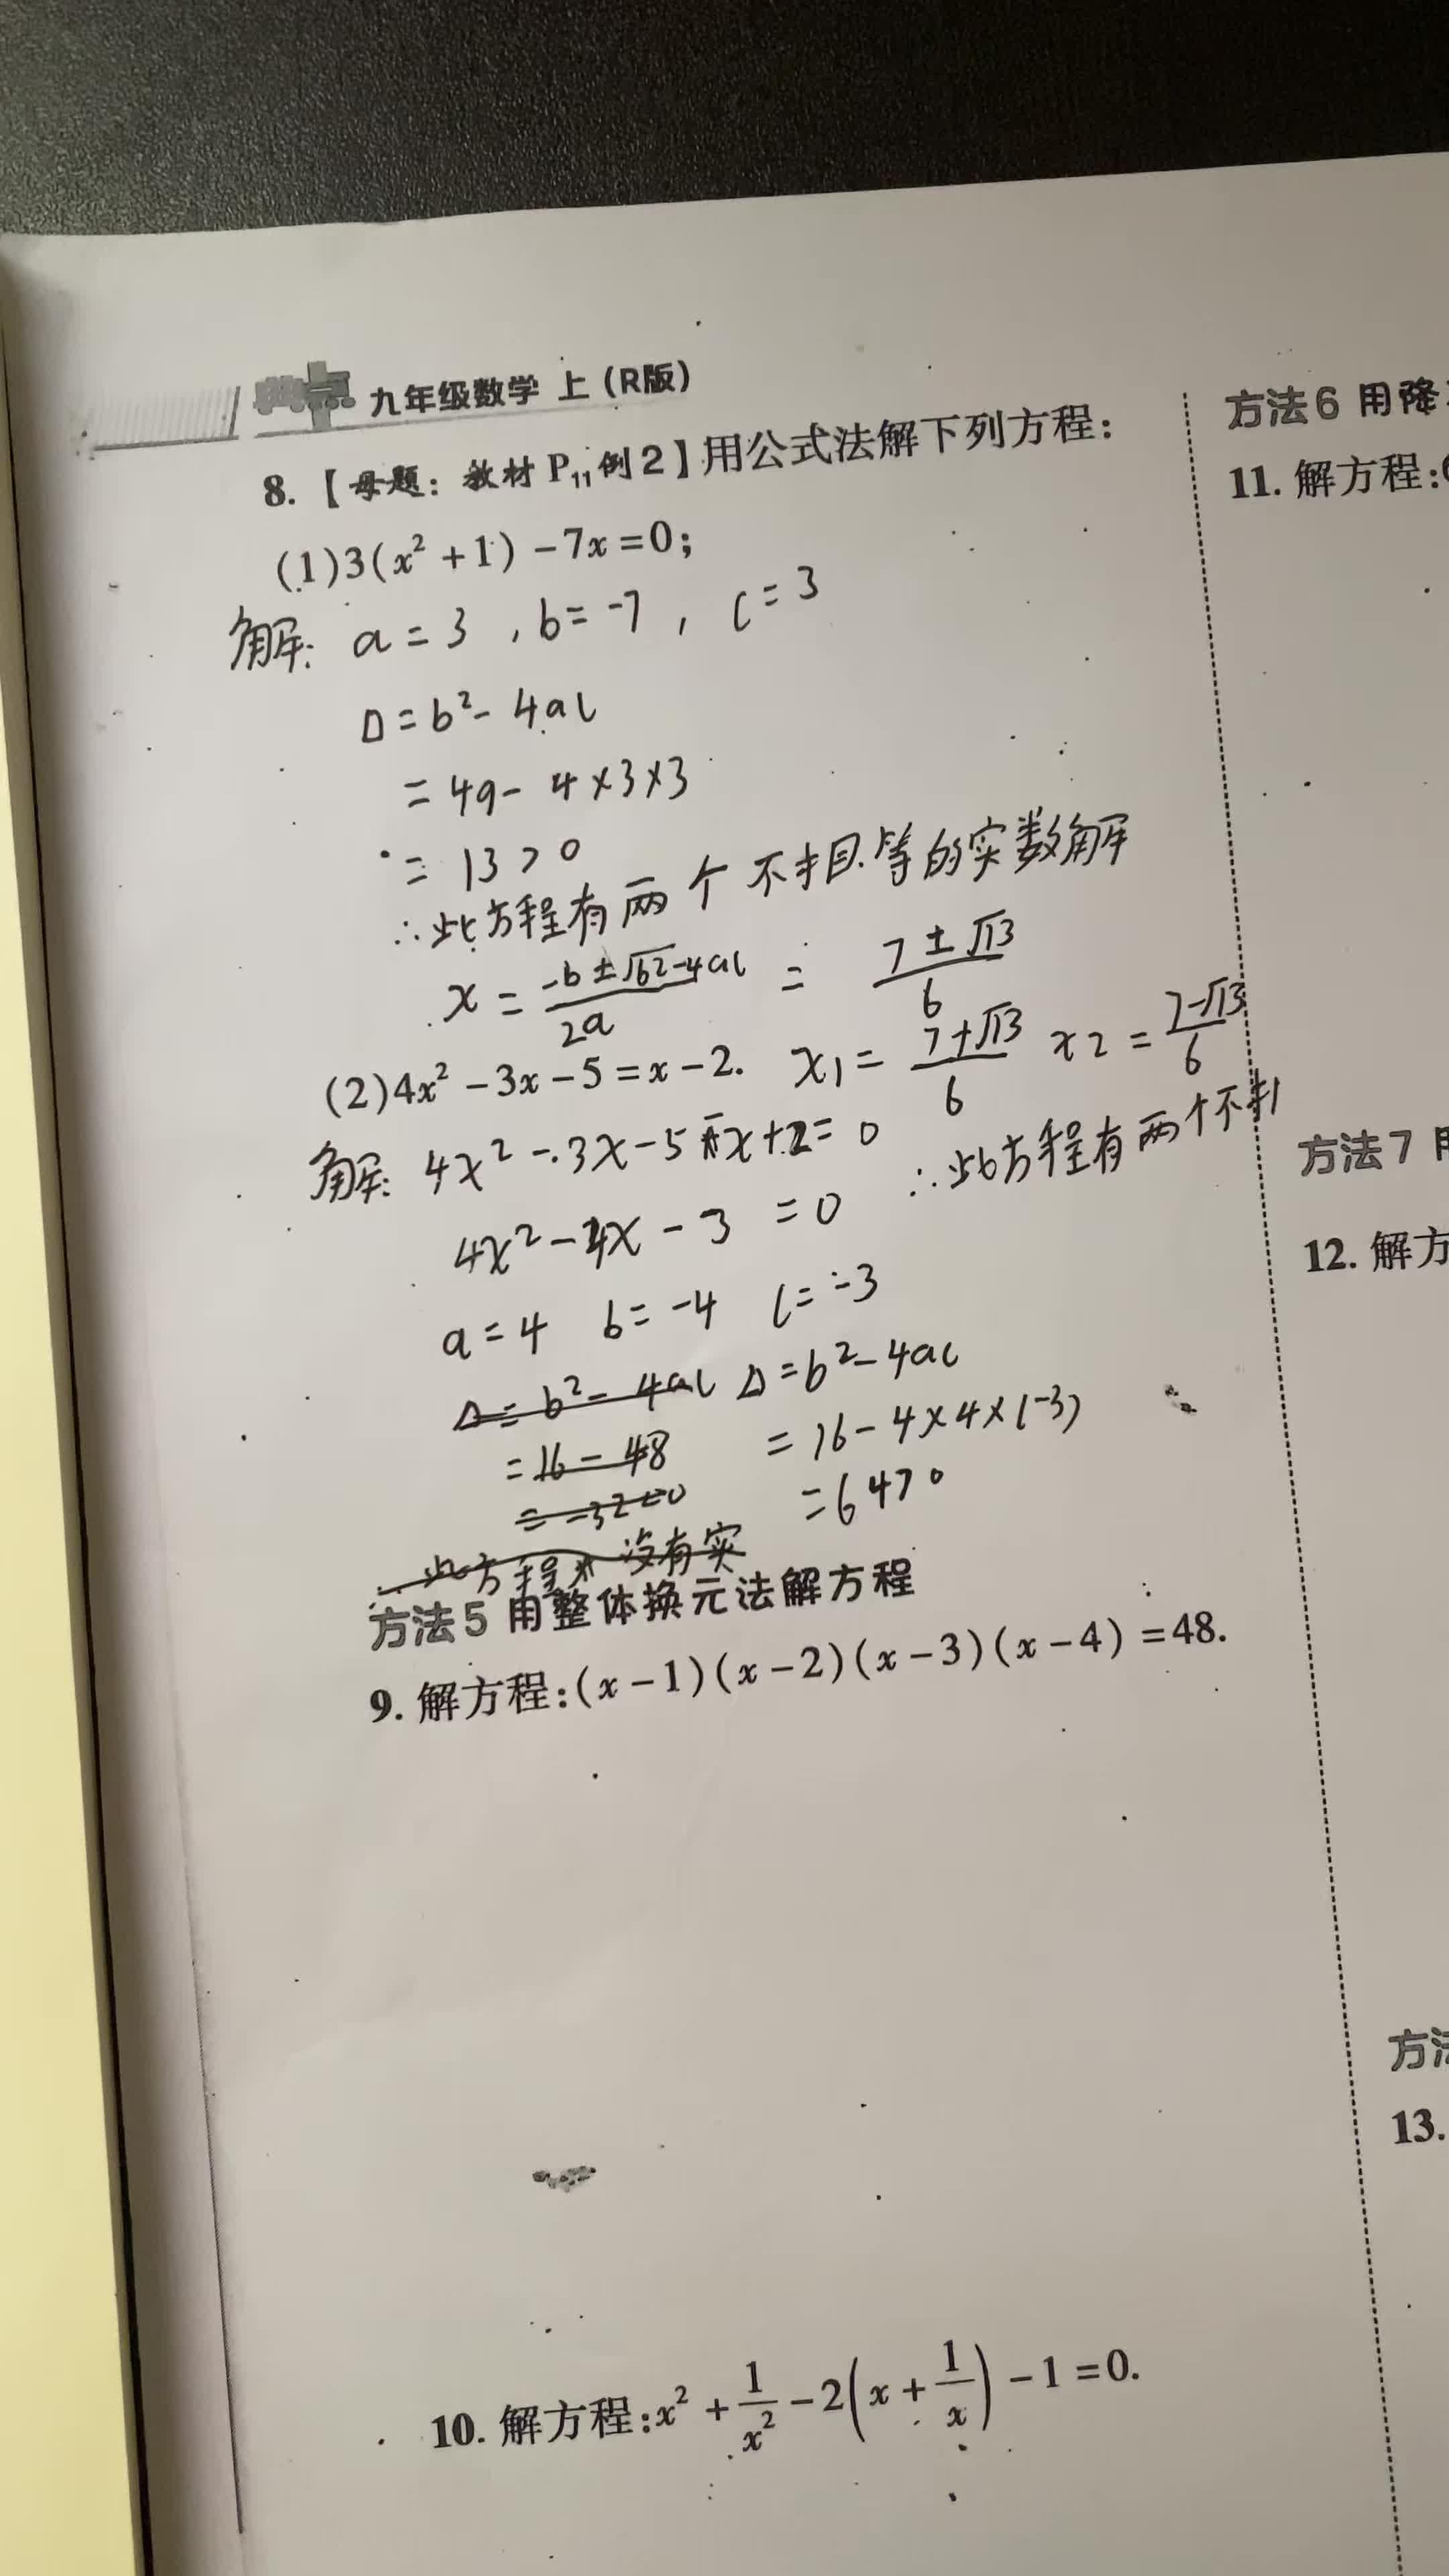 典点 九年级数学 上（R版）
8.【母题：教材P₁₁例2】用公式法解下列方程：
(1)3(x²+1)-7x=0;
解: a=3 , b=-7 , c=3
Δ=b²-4ac
=49-4×3×3
=13>0
∴此方程有两个不相等的实数解
x=\frac{-b±√b²-4ac}{2a} = \frac{7±√13}{6}
(2)4x²-3x-5=x-2. x1=\frac{7+√13}{6} x2=\frac{7-√13}{6}
解: 4x²-3x-5-x+2=0 ∴此方程有两个不相
4x²-4x-3=0
a=4 b=-4 c=-3
Δ=b²-4ac Δ=b²-4ac
=16-48 =16-4×4×(-3)
=-32<0 =64>0
∴此方程 没有实
方法5 用整体换元法解方程
9. 解方程:(x-1)(x-2)(x-3)(x-4)=48.
10. 解方程:x²+\frac{1}{x²}-2(x+\frac{1}{x})-1=0.
方法6 用降
11. 解方程:
方法7
12. 解方
13.